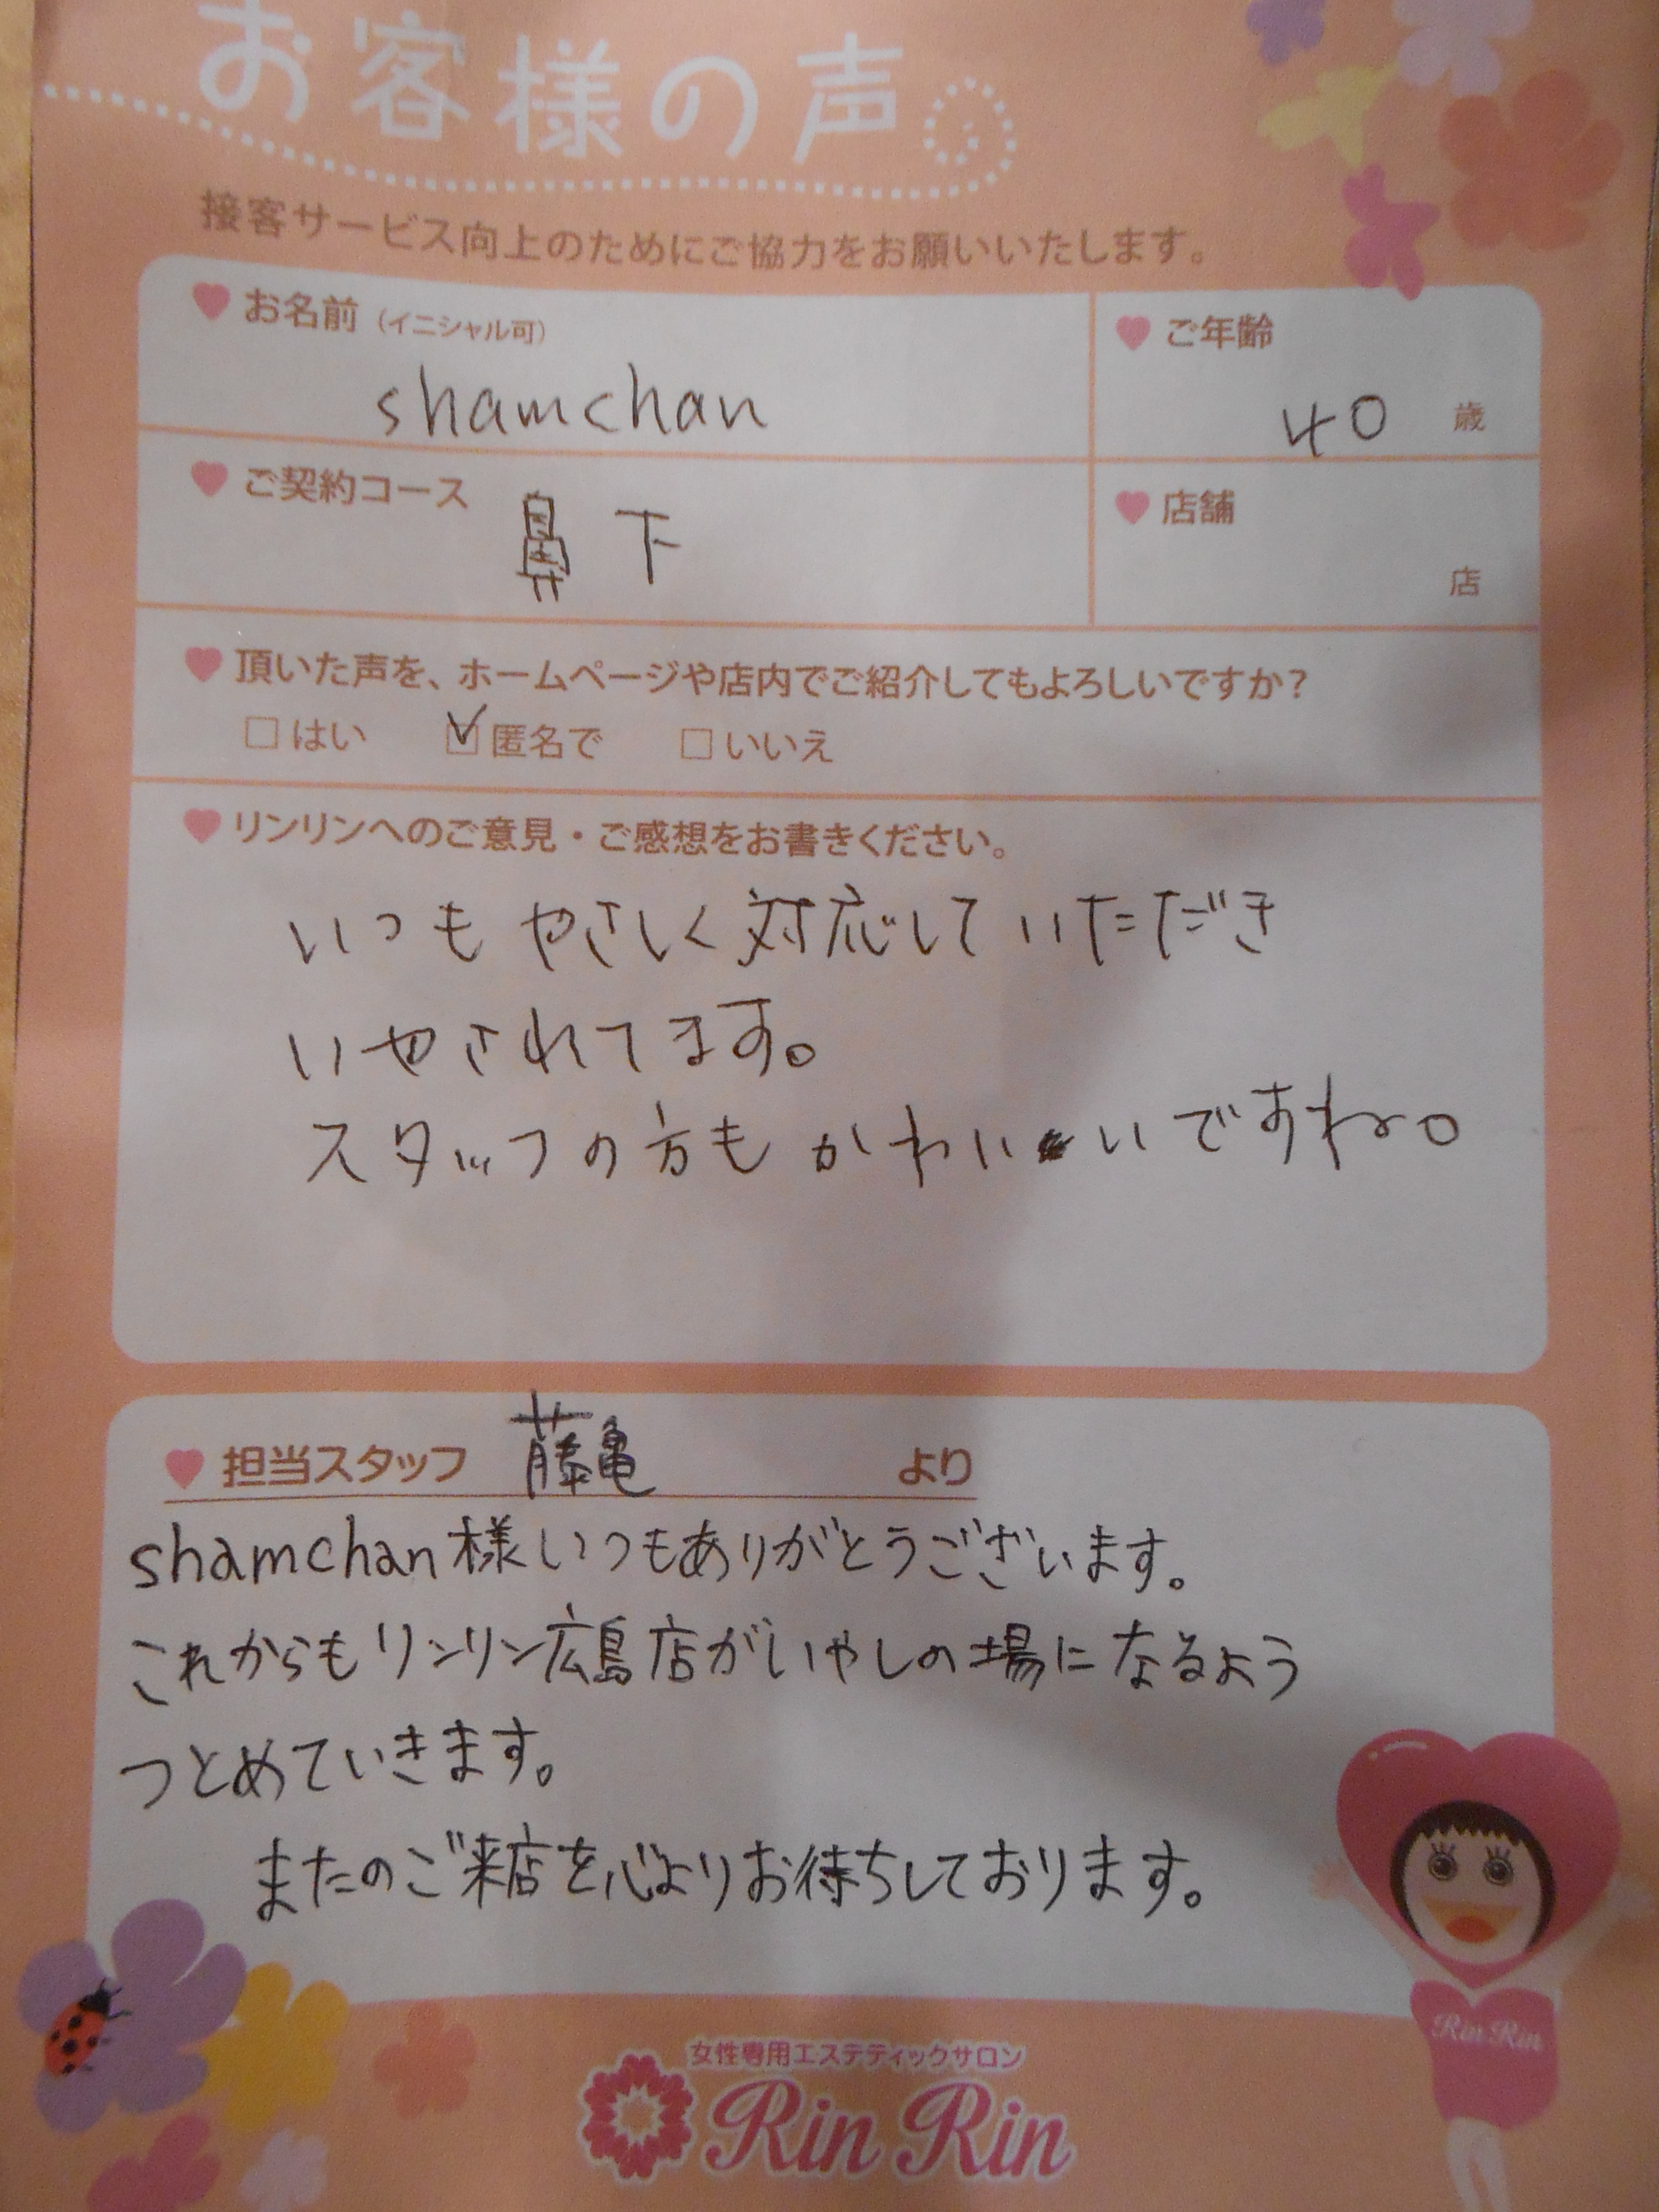 お客様の声。
接客サービス向上のためにご協力をお願いいたします。
お名前（イニシャル可）
shamchan
ご年齢
40 歳
ご契約コース
鼻下
店舗
店
頂いた声を、ホームページや店内でご紹介してもよろしいですか？
はい 匿名で いいえ
リンリンへのご意見・ご感想をお書きください。
いつもやさしく対応していただき
いやされてます。
スタッフの方もかわいいですね。
担当スタッフ 藤亀 より
shamchan様いつもありがとうございます。
これからもリンリン広島店がいやしの場になるよう
つとめていきます。
またのご来店を心よりお待ちしております。
Rin Rin
女性専用エステティックサロン
Rin Rin